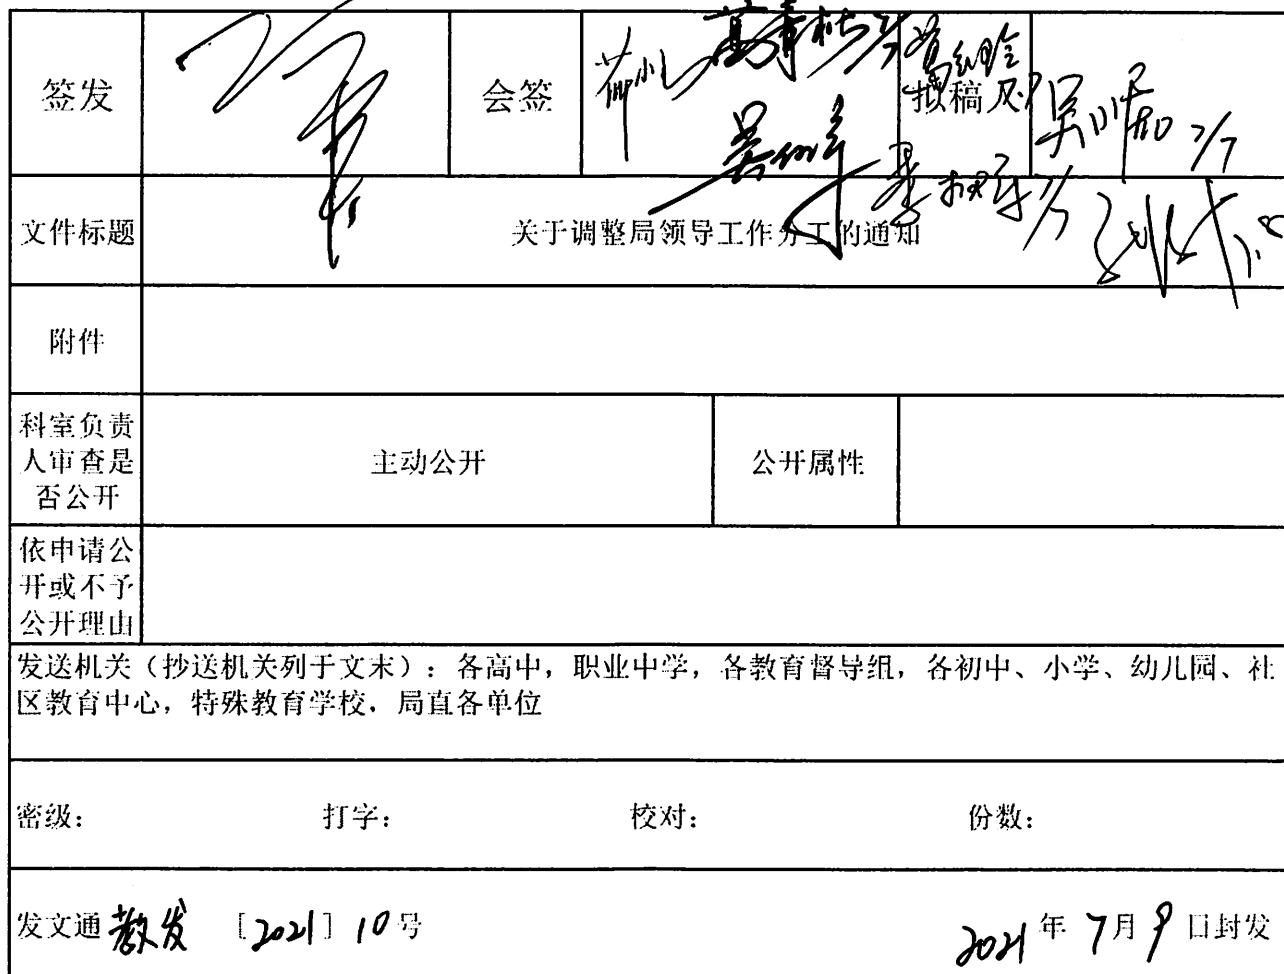 签发
会签
拟稿
7/7
文件标题
关于调整局领导工作分工的通知
附件
科室负责
人审查是
否公开
主动公开
公开属性
依申请公
开或不予
公开理由
发送机关（抄送机关列于文末）：各高中，职业中学，各教育督导组，各初中、小学、幼儿园、社
区教育中心，特殊教育学校，局直各单位
密级： 打字： 校对： 份数：
发文通 教发 [2021] 10号 2021年7月9日封发